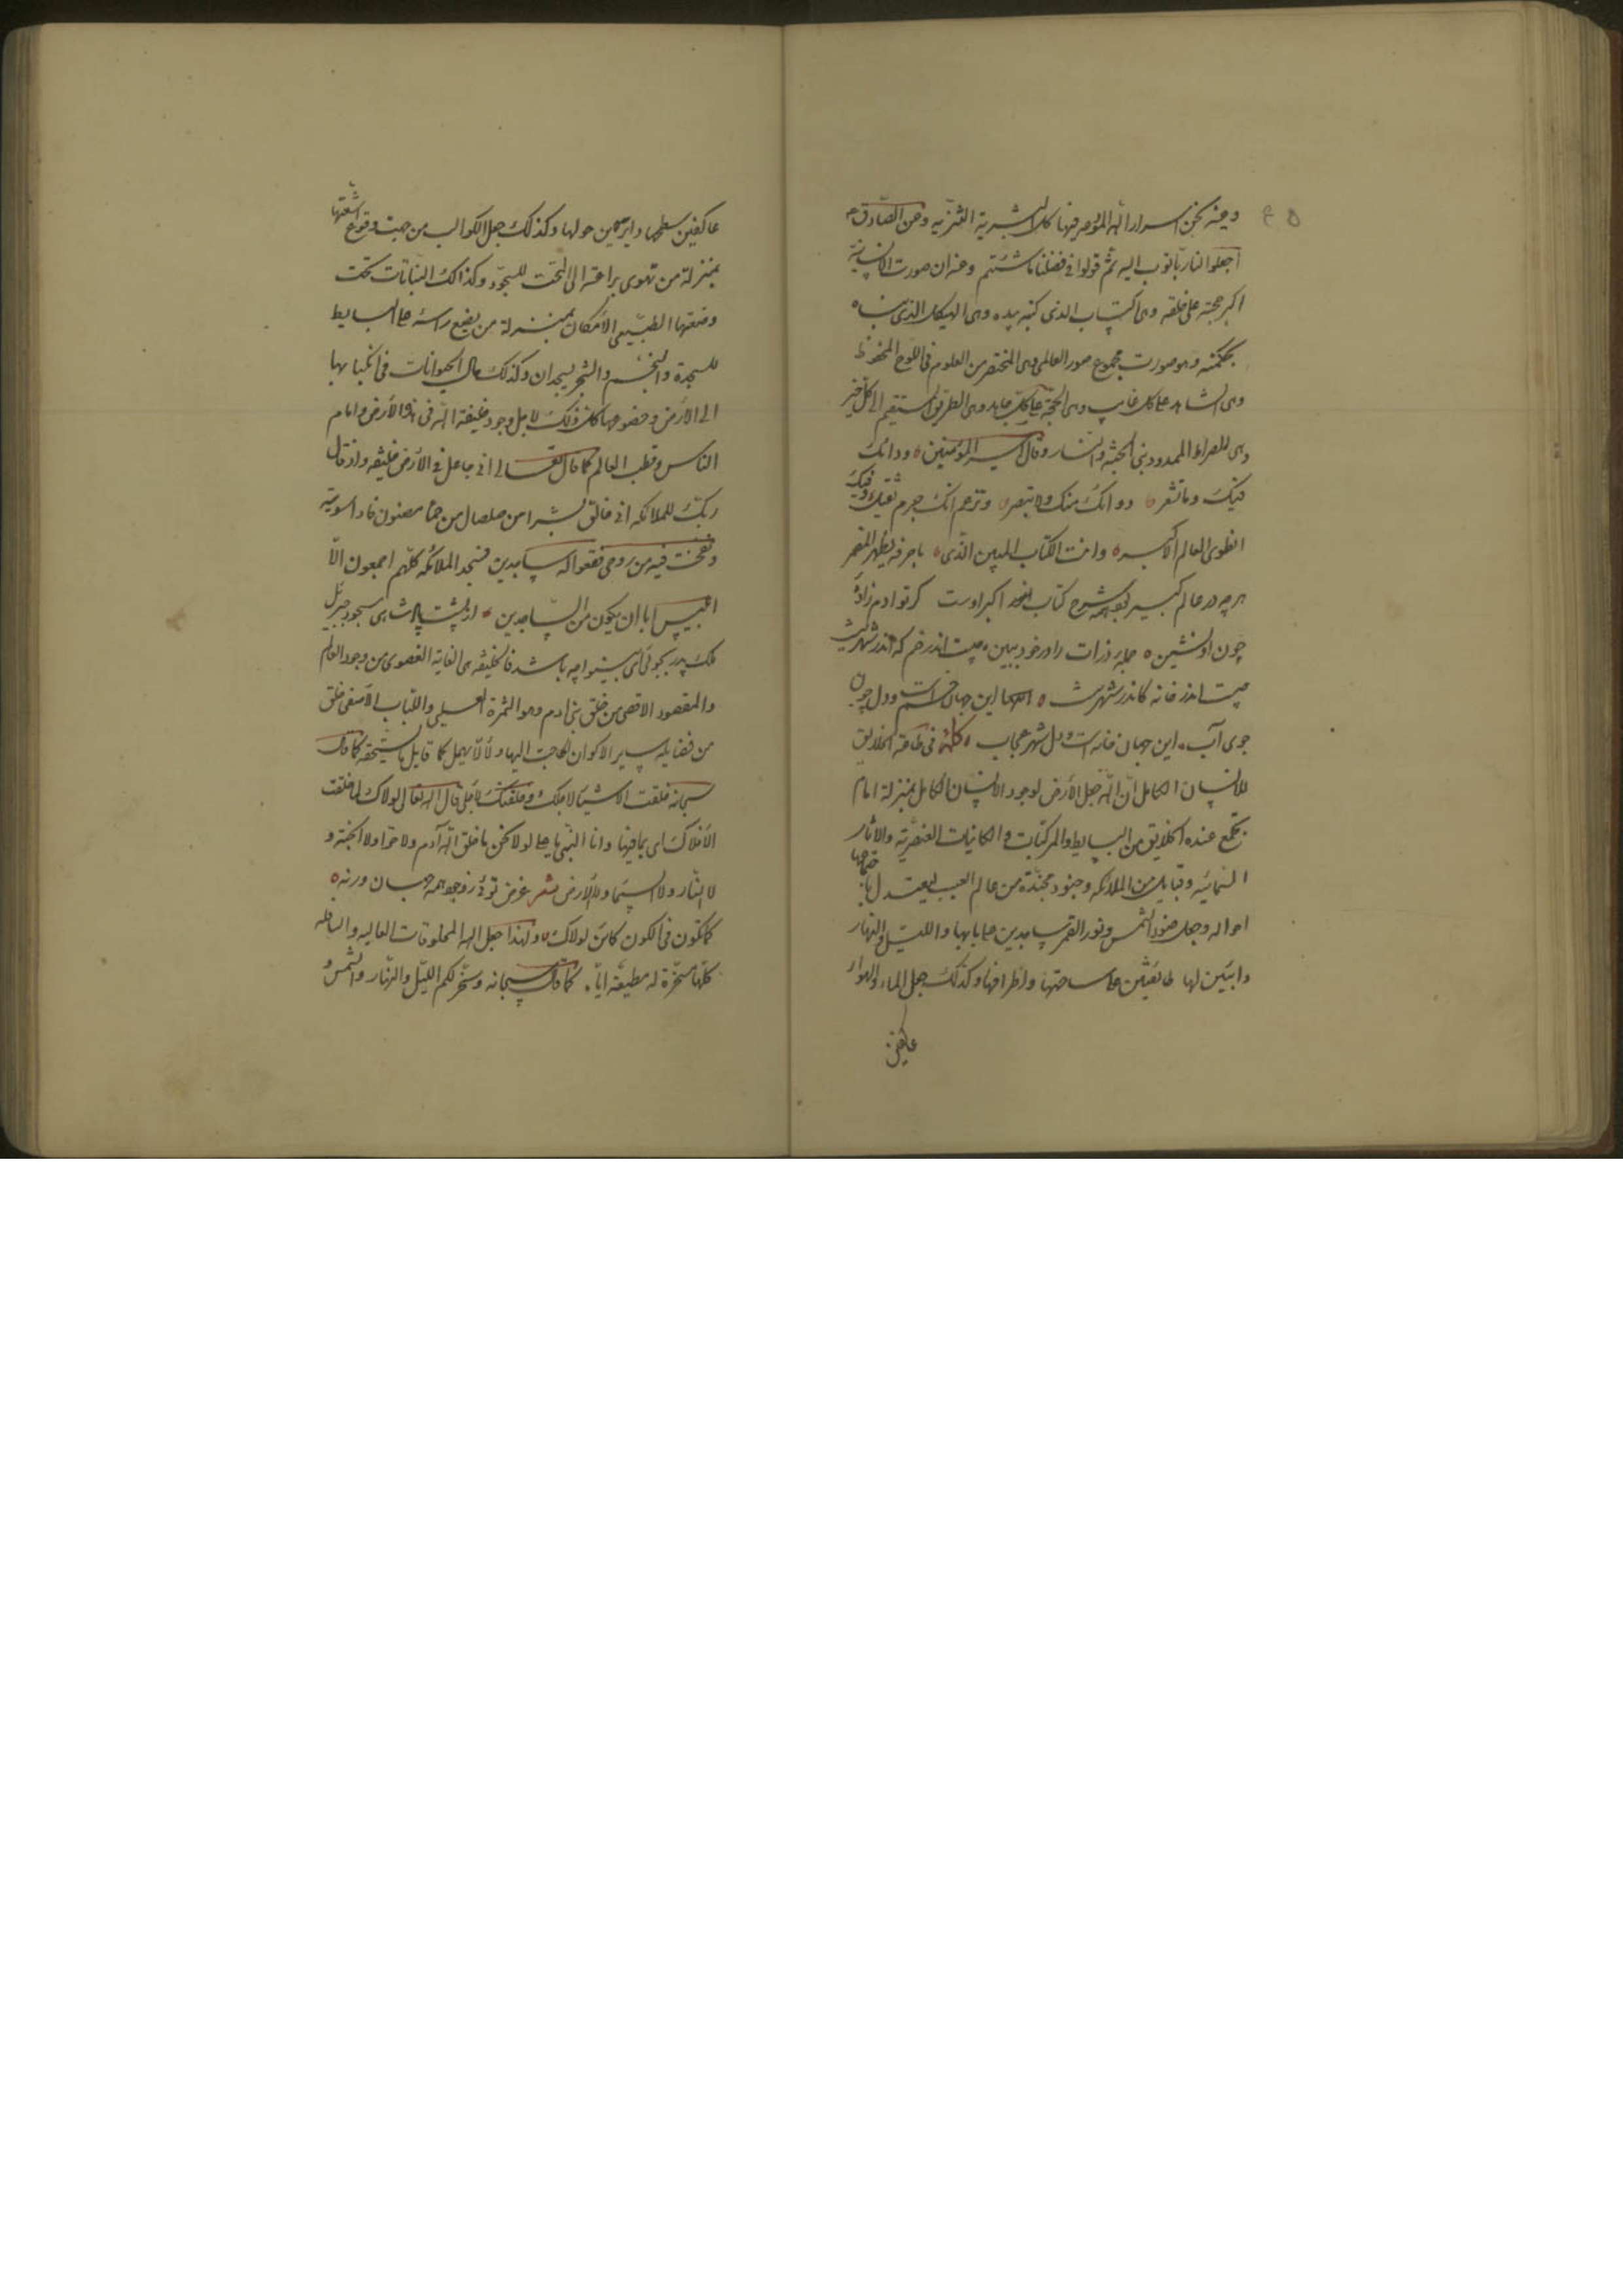 وعنه نحن اسرار الله المودعة فی هیاکل البشریة وعن الصادق
اجعلوا لنا ربا نؤب الیه ثم قولوا فی فضلنا ما شئتم وعنه ان صورت الانسانیة
اکبر حجة علی خلقه وهی الکتاب الذی کتبه بیده وهی الهیکل الذی بناه
بحکمته وهو صورت مجموع صور العالم وهی المختصر من العلوم فی اللوح المحفوظ
وهی الشاهد علی کل غایب وهی الحجة علی کل جاحد وهی الطریق المستقیم الی کل خیر
وهی الصراط الممدود بین الجنة والنار وقال امیر المؤمنین ودائک
فیک وما تشعر ٥ دوائک منک ولا تبصر ٥ وتزعم انک جرم صغیر وفیک
انطوی العالم الاکبر ٥ وانت الکتاب المبین الذی ٥ باحرفه یظهر المضمر
هرچه در عالم کبیر بود همه شرح کتاب اکبر اوست کر تو ادم زاده
چون او نشین ٥ جمله ذرات را در خود ببین ٥ چیست اندر خم که اندر شهر نیست
چیست اندر خانه کاندر شهر نیست ٥ این جهان خم است ودل چون
جوی آب ٥ این جهان خانه است و دل شهر عجاب ٥ کلمة فی طاعة الخلایق
للانسان الکامل ان الله جعل الأرض لوجود الانسان الکامل بمنزلة امام
یجتمع عنده الخلایق من البسایط والمرکبات و الکاینات العنصریة والاثار
السمائیه وقبایل من الملائکه وجنود مجندة من عالم الغیب
احواله وجعل ضوء الشمس ونور القمر ساجدین علی بابها واللیل والنهار
دائبین لها طائفین علی ساحتها واطرافها وکذلک جعل الماء والهواء
عاکفین
عاکفین سطحها ودایرین حولها وکذلک جعل الکواکب من حیث وقوع اشعتها
بمنزلة من تهوی براسه الی التحت للسجود وکذلک النباتات تحت
وضعها الطبیعی الامکان بمنزلة من یضع راسه علی البسایط
للسجدة والنجم والشجر یسجدان وکذلک حال الحیوانات فی انکبابها
الی الارض وخضوعها کل ذلک لاجل وجود خلیفة الله فی الأرض وامام
الناس وقطب العالم کما قال تعالی انی جاعل فی الارض خلیفه واذ قال
ربک للملائکه انی خالق بشرا من صلصال من حما مسنون فاذا سویته
ونفخت فیه من روحی فقعوا له ساجدین فسجد الملائکه کلهم اجمعون الا
ابلیس ابا ان یکون من الساجدین ٥
فالخلیفه هی الغایة القصوی من وجود العالم
والمقصود الاقصی من خلق بنی ادم وهو الثمرة العلیا واللباب الاصفی خلق
من فضایله سایر الاکوان للحاجة الیها ولئلا یهمل کما قابل ما یستحقه کما قال
سبحانه خلقت الاشیاء لاجلک وخلقتک لاجلی قال الله تعالی لولاک لما خلقت
الأفلاک ای بما فیها وانا النبی یا علی لولا نحن ما خلق الله آدم ولا حوا ولا الجنة و
لا النار ولا السماء ولا الأرض شعر غرض توئی ز وجود همه جهان ورنه ٥
لما تکون فی الکون کاین لولاک ٥ ولهذا جعل الله المخلوقات العالیه والسافله
کلها مسخرة له مطیعة ایاه کما قال سبحانه وسخر لکم اللیل والنهار والشمس و